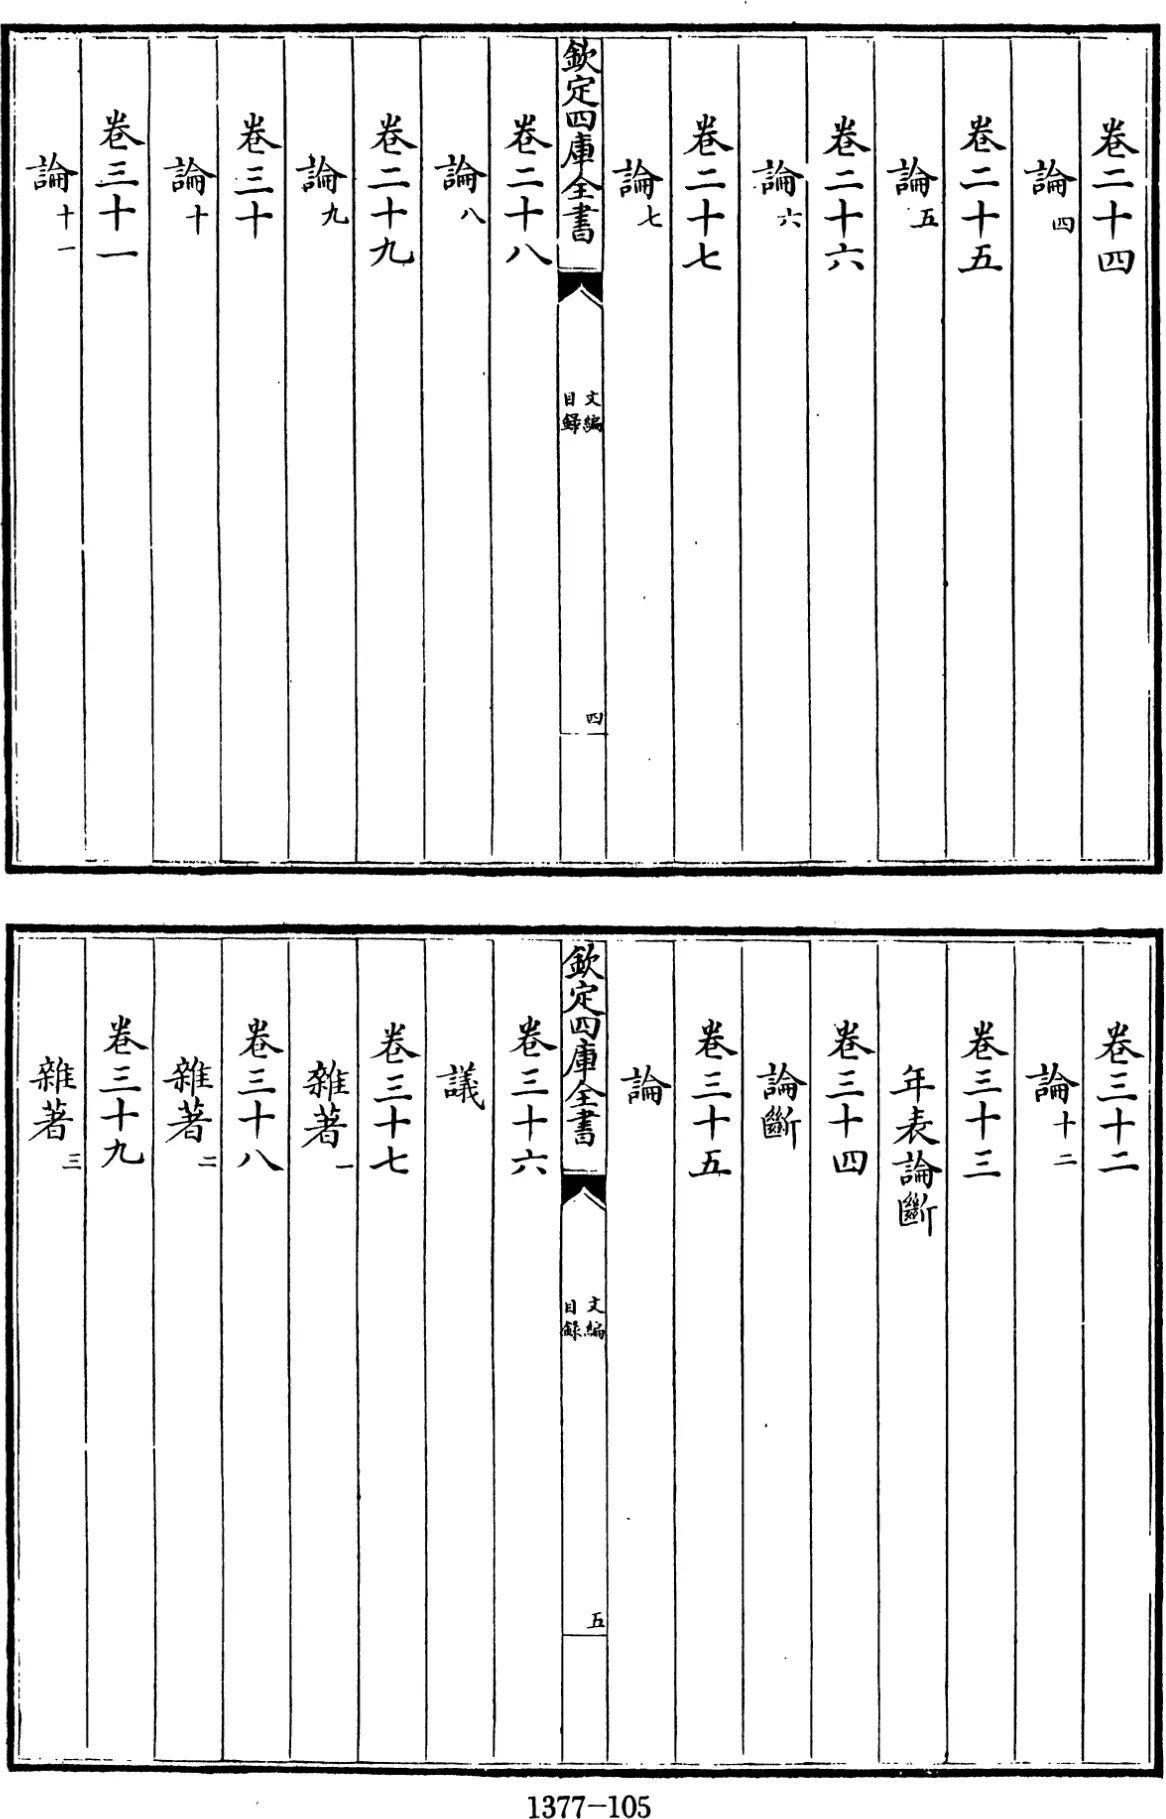 卷二十四
論四
卷二十五
論五
卷二十六
論六
卷二十七
論七
欽定四庫全書
文編
目録
四
卷二十八
論八
卷二十九
論九
卷三十
論十
卷三十一
論十一
卷三十二
論十二
卷三十三
年表論斷
卷三十四
論斷
卷三十五
論
欽定四庫全書
文編
目録
五
卷三十六
議
卷三十七
雜著一
卷三十八
雜著二
卷三十九
雜著三
1377-105